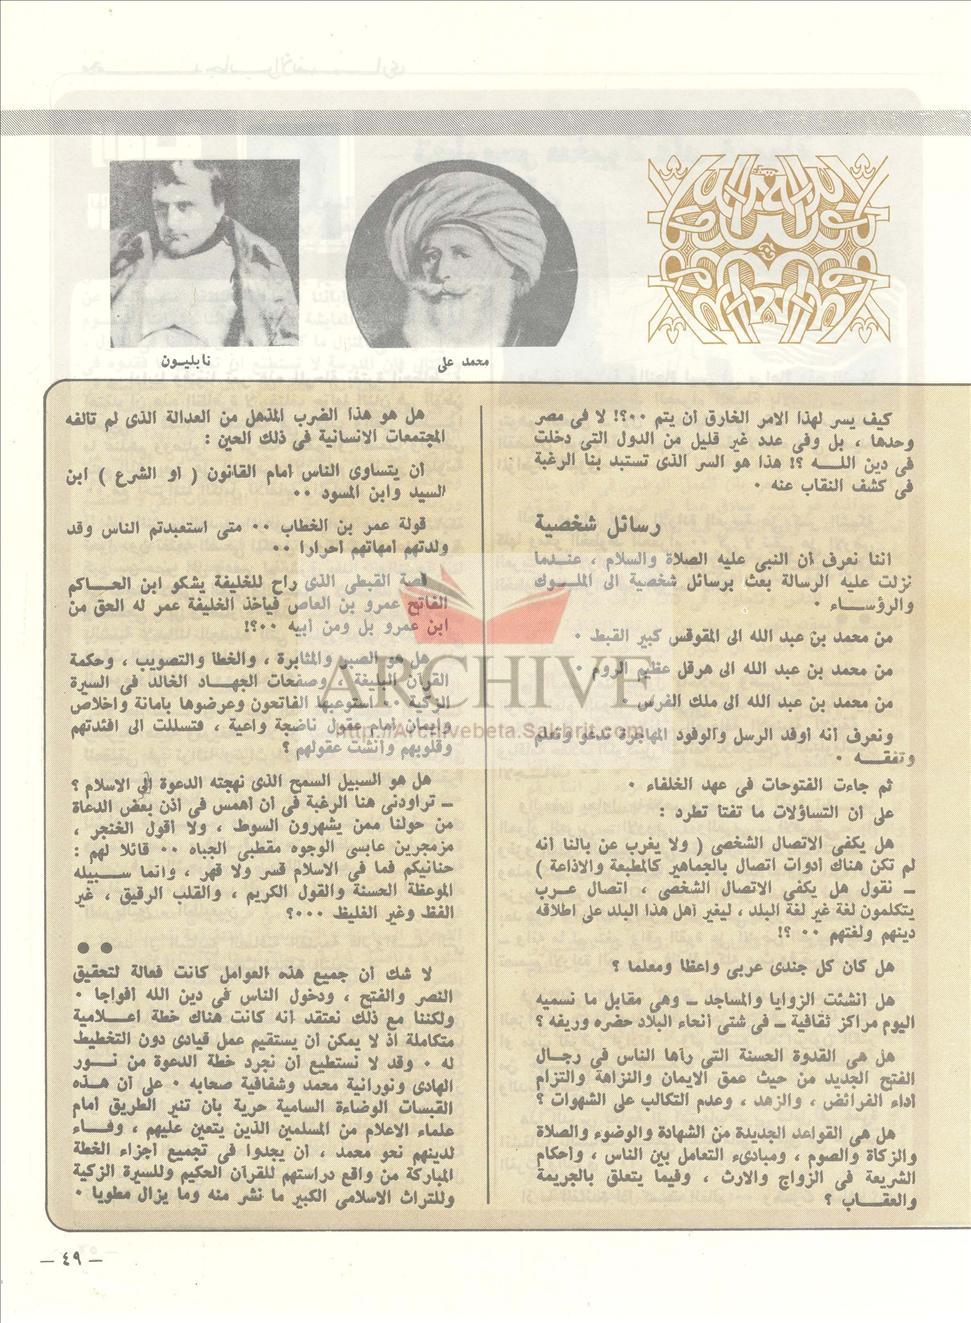 محمد على
نابليون
كيف يسر لهذا الامر الخارق أن يتم ٠٠؟! لا فى مصر
وحدها ، بل وفى عدد غير قليل من الدول التى دخلت
فى دين اللـــه ؟! هذا هو السر الذى تستبد بنا الرغبة
فى كشف النقاب عنه ٠
رسائل شخصية
اننا نعرف أن النبى عليه الصلاة والسلام ، عنـدما
نزلت عليه الرسالة بعث برسائل شخصية الى الملـوك
والرؤسـاء ٠
من محمد بن عبد الله الى المقوقس كبير القبط ٠
من محمد بن عبد الله الى هرقل عظيم الروم ٠
من محمد بن عبد الله الى ملك الفرس ٠
ونعرف أنه أوفد الرسل والوفود المهاجرة تدعو وتعلم
وتفقـه ٠
ثم جاءت الفتوحات فى عهد الخلفاء ٠
على أن التساؤلات ما تفتأ تطرد :
هل يكفى الاتصال الشخصى ( ولا يغرب عن بالنا أنه
لم تكن هناك أدوات اتصال بالجماهير كالمطبعة والاذاعة )
ـ نقول هل يكفى الاتصال الشخصى ، اتصال عـرب
يتكلمون لغة غير لغة البلد ، ليغير أهل هذا البلد على اطلاقه
دينهم ولغتهم ٠٠ ؟!
هل كان كل جندى عربى واعظا ومعلما ؟
هل أنشئت الزوايا والمساجد ـ وهى مقابل ما نسميه
اليوم مراكز ثقافية ـ فى شتى أنحاء البلاد حضره وريفه ؟
هل هى القدوة الحسنة التى رآها الناس فى رجـال
الفتح الجديد من حيث عمق الايمان والنزاهة والتزام
أداء الفرائض ، والزهد ، وعدم التكالب على الشهوات ؟
هل هى القواعد الجديدة من الشهادة والوضوء والصلاة
والزكاة والصوم ، ومبادىء التعامل بين الناس ، وأحكام
الشريعة فى الزواج والارث ، وفيما يتعلق بالجريمة
والعقـاب ؟
هل هو هذا الضرب المذهل من العدالة الذى لم تالفه
المجتمعات الانسانية فى ذلك الحين :
أن يتساوى الناس أمام القانون ( أو الشرع ) ابن
السيد وابن المسود ٠٠
قولة عمر بن الخطاب ٠٠ متى استعبدتم الناس وقد
ولدتهم أمهاتهم أحرارا ٠٠
قصة القبطى الذى راح للخليفة يشكو ابن الحـاكم
الفاتح عمرو بن العاص فيأخذ الخليفة عمر له الحق من
ابن عمرو بل ومن أبيه ٠٠؟!
هل هو الصبر والمثابرة ، والخطأ والتصويب ، وحكمة
القرآن البليغة ، وصفحات الجهـاد الخالد فى السيرة
الزكية ٠٠ استوعبها الفاتحون وعرضوها بأمانة واخلاص
وايمان أمام عقول ناضجة واعية ، فتسللت الى أفئدتهم
وقلوبهم وأنشت عقولهم ؟
هل هو السبيل السمح الذى نهجته الدعوة الى الاسلام ؟
ـ تراودنى هنا الرغبة فى أن أهمس فى أذن بعض الدعاة
من حولنا ممن يشهرون السوط ، ولا أقول الخنجر ،
مزمجرين عابسى الوجوه مقطبى الجباه ٠٠ قائلا لهم :
حنانيكم فما فى الاسلام قسر ولا قهر ، وانما سـبيله
الموعظة الحسنة والقول الكريم ، والقلب الرقيق ، غير
الفظ وغير الغليظ ٠٠٠؟
لا شك أن جميع هذه العوامل كانت فعالة لتحقيق
النصر والفتح ، ودخول الناس فى دين الله أفواجا ٠
ولكننا مع ذلك نعتقد أنه كانت هناك خطة اعـلامية
متكاملة اذ لا يمكن أن يستقيم عمل قيادى دون التخطيط
له ٠ وقد لا نستطيع أن نجرد خطة الدعوة من نـور
الهادى ونورانية محمد وشفافية صحابه ٠ على أن هـذه
القبسات الوضاءة السامية حرية بأن تنير الطريق أمام
علماء الاعلام من المسلمين الذين يتعين عليهم ، وفـاء
لدينهم نحو محمد ، أن يجدوا فى تجميع أجزاء الخطة
المباركة من واقع دراستهم للقرآن الحكيم وللسيرة الزكية
وللتراث الاسلامى الكبير ما نشر منه وما يزال مطويا ٠
ARCHIVE
http://Archivebeta.Sakhrit.com
ـ ٤٩ ـ